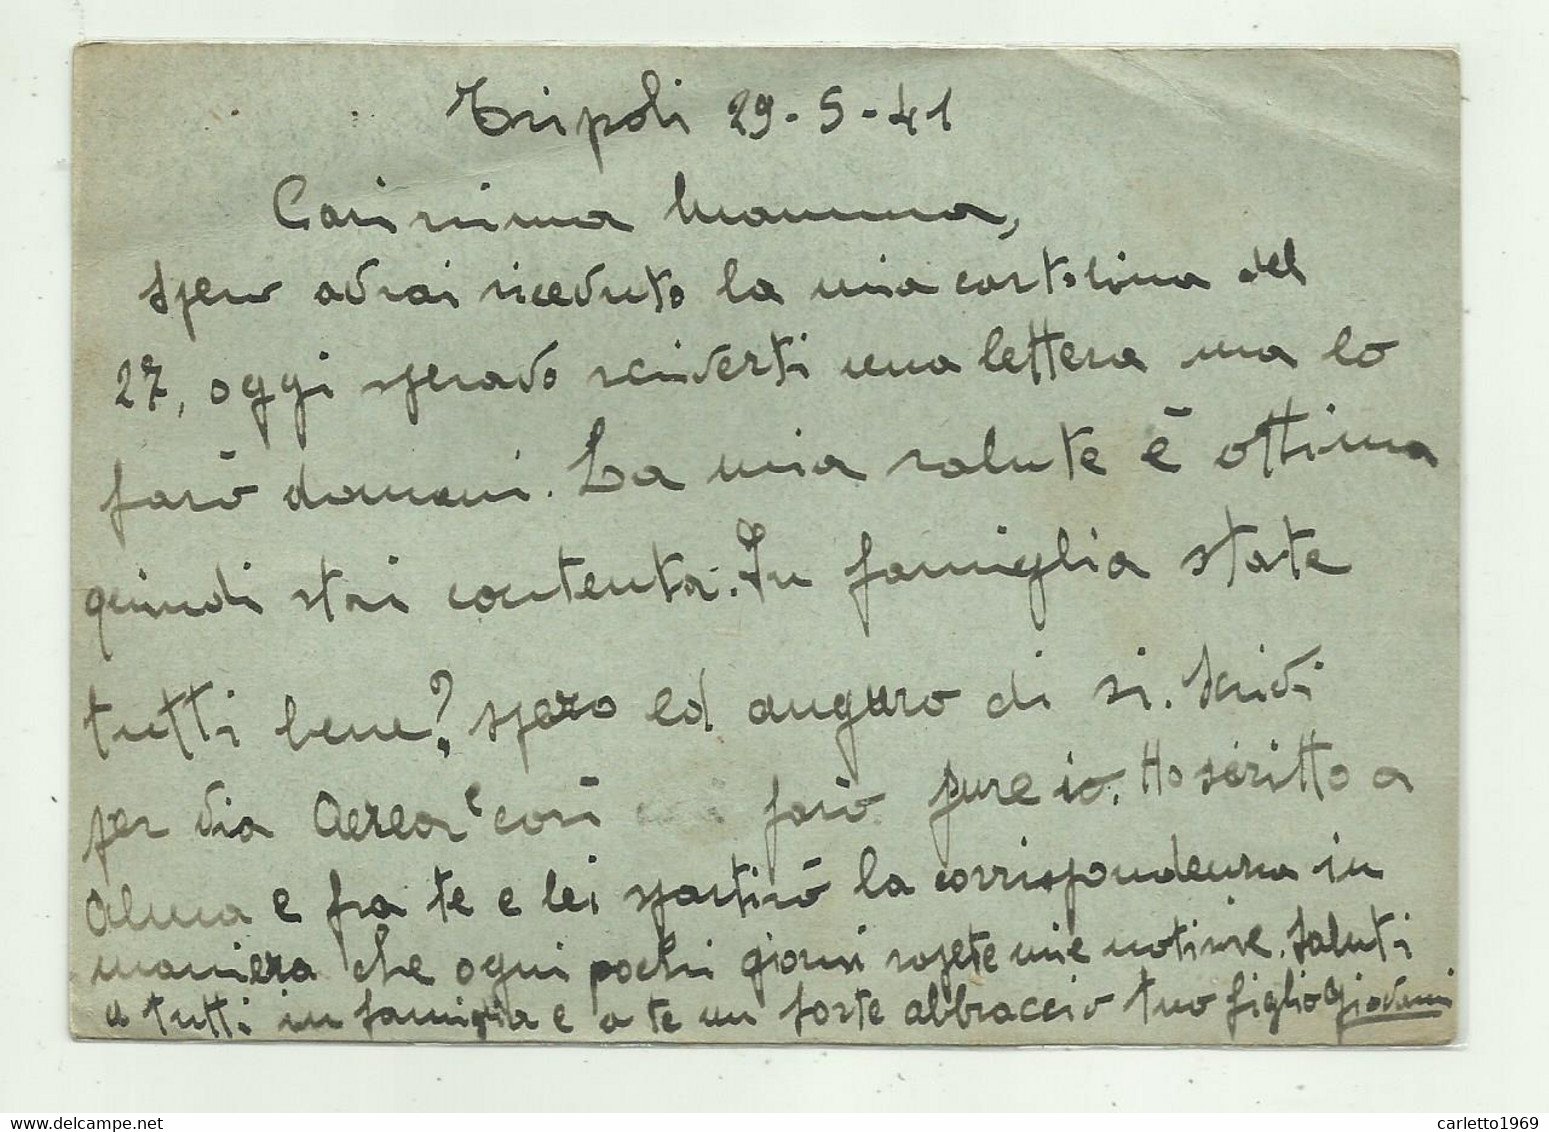 Tripoli 29-5-41
Carissima Mamma,
spero avrai ricevuto la mia cartolina del
27, oggi speravo scriverti una lettera ma lo
farò domani. La mia salute è ottima
quindi stai contenta. In famiglia state
tutti bene? spero ed auguro di si. Scrivi
per via Aerea e così farò pure io. Ho scritto a
Alma e fra te e lei spartirò la corrispondenza in
maniera che ogni pochi giorni sapete mie notizie. Saluti
a tutti in famiglia e a te un forte abbraccio tuo figlio Giovanni
carletto1969